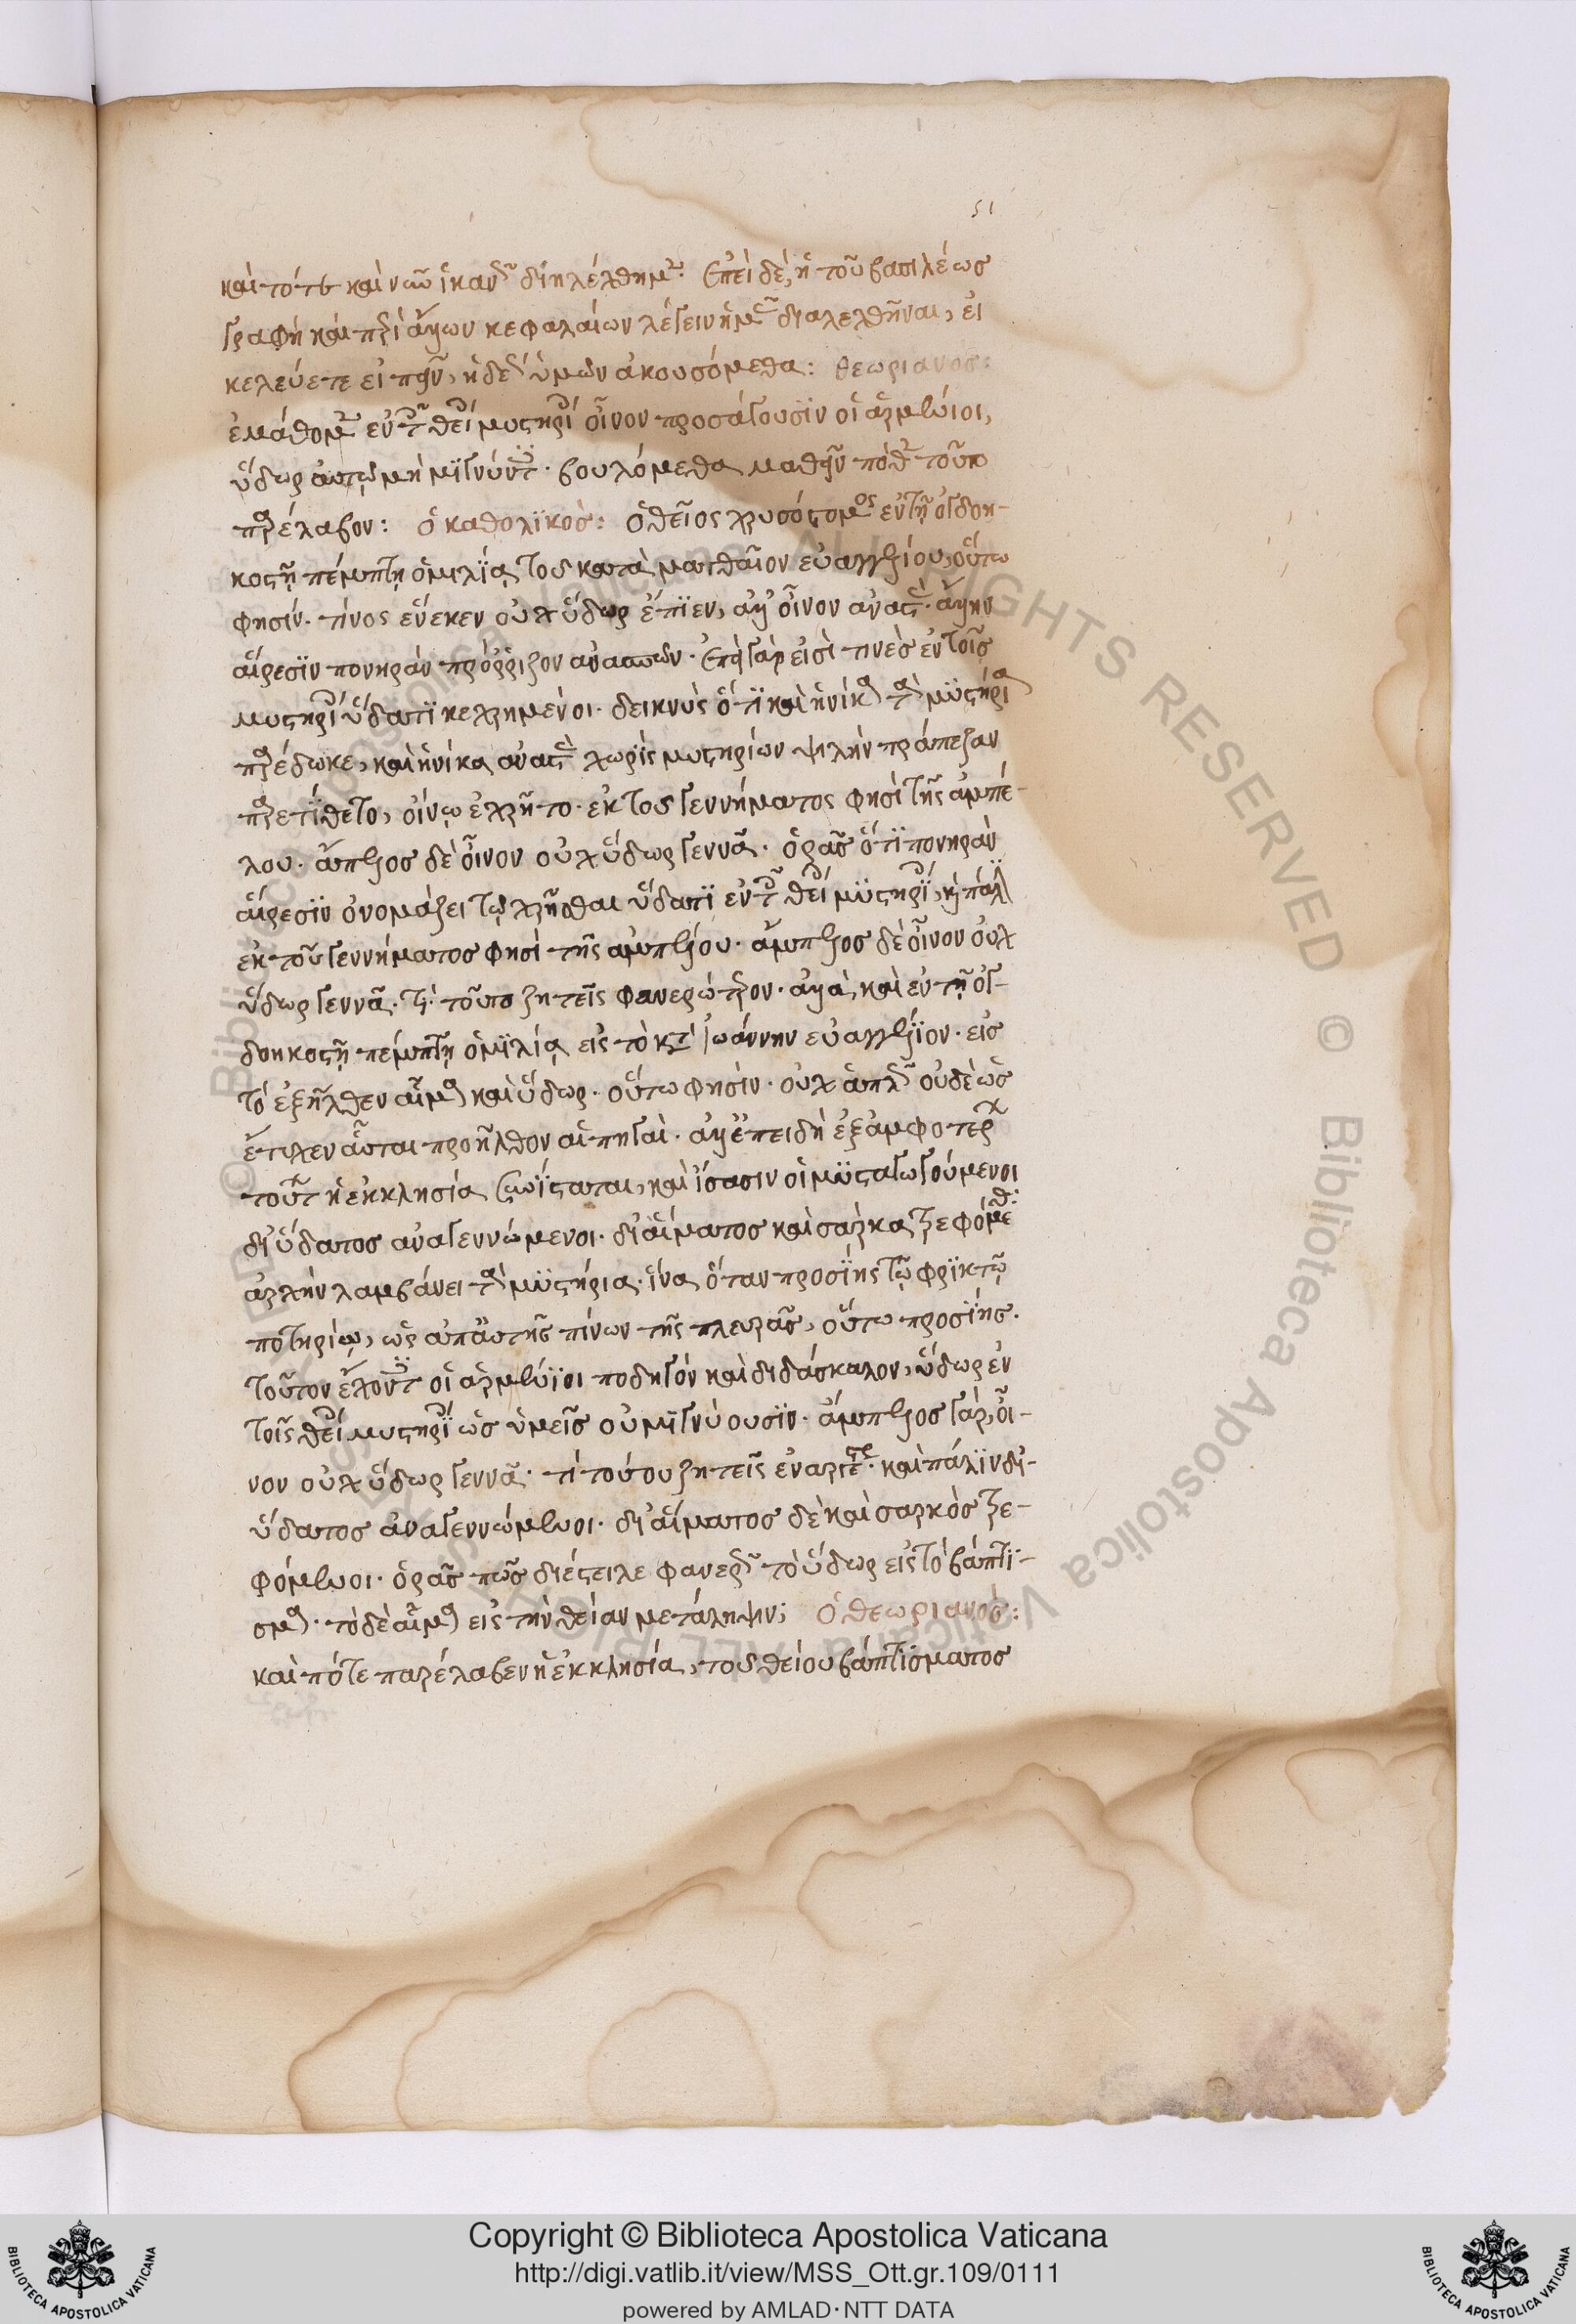 51
καὶ τότε καὶ νῦν ἱκανῶς διηλέχθημεν. Ἐπεὶ δὲ, ἡ τοῦ βασιλέως
γραφὴ καὶ περὶ ἄλλων κεφαλαίων λέγειν ἡμᾶς διαλεχθῆναι, εἰ
κελεύετε εἰπεῖν, ἡδέως ὑμῶν ἀκουσόμεθα: θεωριανός:
ἐμάθομεν ἐν τοῖς θείοις μυστηρίοις οἶνον προσάγουσϊν οἱ ἀρμένιοι,
ὕδωρ αὐτῷ μὴ μϊγνύντες. βουλόμεθα μαθεῖν πόθεν τοῦτο
παρέλαβον: ὁ καθολϊκός: ὁ θεῖος χρυσόστομος ἐν τῇ ὀγδοη-
κοστῇ πέμπτῃ ὁμιλίᾳ τοῦ κατὰ ματθαῖον εὐαγγελίου, οὕτω
φησίν. τίνος ἕνεκεν οὐχ ὕδωρ ἔπϊεν, ἀλλ' οἶνον ἀναστάς. ἄλλην
αἵρεσϊν πονηρὰν πρόρριζον ἀνασπῶν. ἐπεὶ γάρ εἰσί τινὲς ἐν τοῖς
μυστηρίοις ὕδατϊ κεχρημένοι. δεικνὺς ὅτϊ καὶ ἡνίκα τὰ μϋστήρια
παρέδωκε, καὶ ἡνίκα ἀναστὰς χωρὶς μυστηρίων ψιλὴν τράπεζαν
παρετϊθετο, οἴνῳ ἐχρῆτο. ἐκ τοῦ γεννήματος φησὶ τῆς ἀμπέ-
λου. ἄμπελος δὲ οἶνον οὐχ ὕδωρ γεννᾶ. ὁρᾶς ὅτϊ πονηρὰν
αἵρεσϊν ὀνομάζει τῷ χρῆσθαι ὕδατϊ ἐν τοῖς θείοις μϋστηρίοις, καὶ πάλιν
ἐκ τοῦ γεννήματος φησὶ τῆς ἀμπέλου. ἄμπελος δὲ οἶνον οὐχ
ὕδωρ γεννᾶ. τί τοῦτο ζητεῖς φανερώτερον. ἀλλὰ, καὶ ἐν τῇ ὀγ-
δοηκοστῇ πέμπτῃ ὁμϊλίᾳ εἰς τὸ κατὰ ἰωάννην εὐαγγέλϊον. εἰς
τὸ ἐξῆλθεν αἷμα καὶ ὕδωρ. οὕτω φησίν. οὐχ ἁπλῶς οὐδὲ ὡς
ἔτυχεν αὗται προῆλθον αἱ πηγαί. ἀλλ' ἐπειδὴ ἐξ ἀμφοτέρων
τούτων ἡ ἐκκλησία συνίσταται, καὶ ἴσασιν οἱ μϋσταγωγούμενοι
δι' ὕδατος ἀναγεννώμενοι. δι' αἵματος καὶ σαρκὸς τρεφόμενοι
ἀρχὴν λαμβάνει τὰ μϋστήρια. ἵνα ὅταν προσίῃς τῷ φρϊκτῷ
ποτηρίῳ, ὡς ἀπ' αὐτῆς πίνων τῆς πλευρᾶς, οὕτω προσίῃς.
τοῦτον ἔχοντες οἱ ἀρμένϊοι ποδηγὸν καὶ διδάσκαλον, ὕδωρ ἐν
τοῖς θείοις μυστηρίοις ὡς ὑμεῖς οὐ μϊγνύουσϊν. ἄμπελος γὰρ, οἶ-
νον οὐχ ὕδωρ γεννᾶ. τί τούτου ζητεῖς ἐναργέστερον. καὶ πάλϊν δι'
ὕδατος ἀναγεννώμενοι. δι' αἵματος δὲ καὶ σαρκὸς τρε-
φόμενοι. ὁρᾶς πῶς διέστειλε φανερῶς τὸ ὕδωρ εἰς τὸ βάπτϊ-
σμα. τὸ δὲ αἷμα εἰς τὴν θείαν μετάληψιν; ὁ θεωριανός:
καὶ πότε παρέλαβεν ἡ ἐκκλησία, τοῦ θείου βαπτϊσματος
© Biblioteca Apostolica Vaticana ALL RIGHTS RESERVED
Copyright © Biblioteca Apostolica Vaticana
http://digi.vatlib.it/view/MSS_Ott.gr.109/0111
powered by AMLAD·NTT DATA
BIBLIOTECA APOSTOLICA VATICANA
BIBLIOTECA APOSTOLICA VATICANA